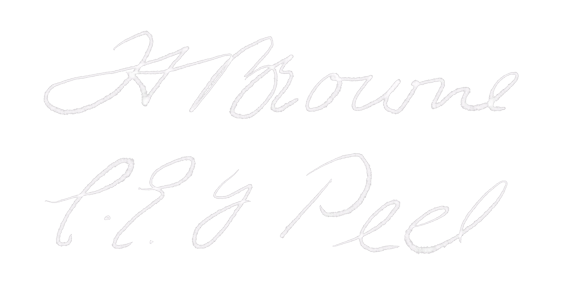 H Browne
P. E. G Peel